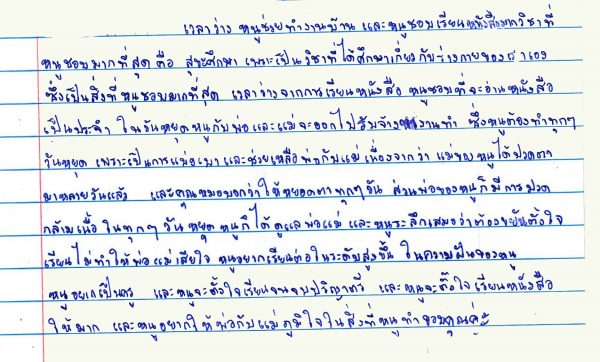 เวลาว่าง หนูช่วยทำงานบ้าน และหนูชอบเรียนหนังสือมากวิชาที่
หนูชอบมากที่สุด คือ สุขะศึกษา เพราะเป็นวิชาที่ได้ศึกษาเกี่ยวกับร่างกายของตัวเอง
ซึ่งเป็นสิ่งที่หนูชอบมากที่สุด เวลาว่างจากการเรียนหนังสือ หนูชอบที่จะอ่านหนังสือ
เป็นประจำ ในวันหยุดหนูกับพ่อและแม่จะออกไปรับจ้างหางานทำ ซึ่งหนูต้องทำทุกๆ
วันหยุด เพราะเป็นการแบ่งเบา และช่วยเหลือพ่อกับแม่ เนื่องจากว่า แม่ของหนูได้ปวดตา
มาหลายวันแล้ว และคุณหมอบอกว่าให้หยอดตาทุกๆวัน ส่วนพ่อของหนูก็มีการปวด
กล้ามเนื้อ ในทุกๆวันหยุดหนูก็ได้ดูแลพ่อแม่ และหนูระลึกเสมอว่าต้องขยันตั้งใจ
เรียนไม่ทำให้พ่อแม่เสียใจ หนูอยากเรียนต่อในระดับสูงขึ้น ในความฝันของหนู
หนูอยากเป็นครู และหนูจะตั้งใจเรียนจนจบปริญาตรี และหนูจะตั้งใจเรียนหนังสือ
ให้มาก และหนูอยากให้พ่อกับแม่ภูมิใจในสิ่งที่หนูทำขอบคุณค่ะ